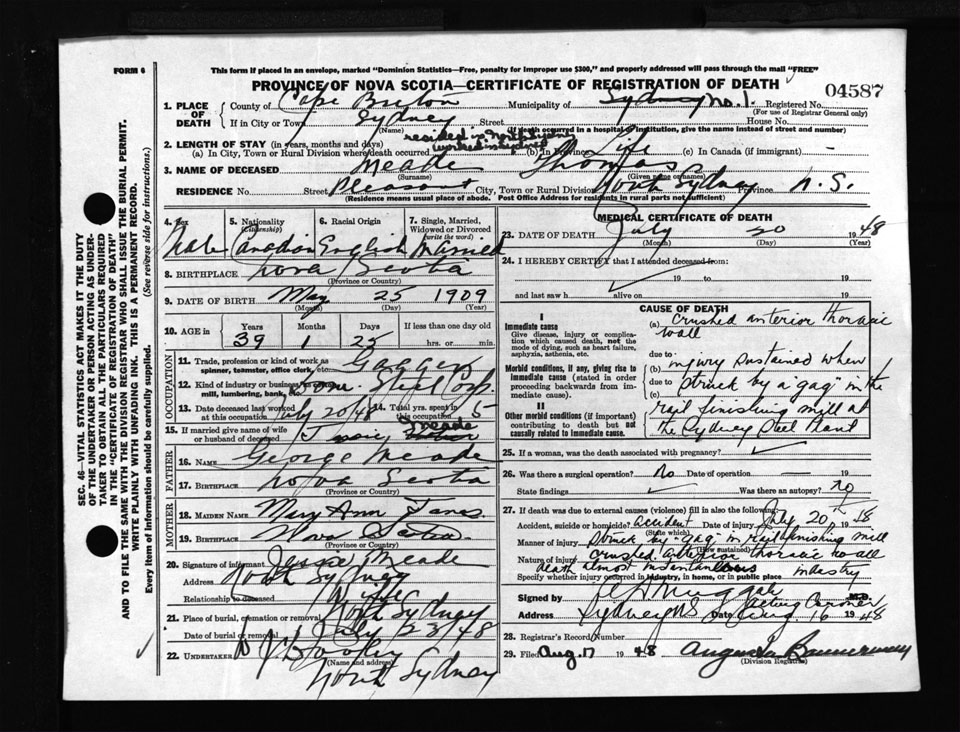 FORM 6
This form if placed in an envelope, marked "Dominion Statistics—Free, penalty for improper use $300," and properly addressed will pass through the mail "FREE"
PROVINCE OF NOVA SCOTIA—CERTIFICATE OF REGISTRATION OF DEATH
04587
1. PLACE OF DEATH County of Cape Breton Municipality of Sydney No. 1. Registered No.
(For use of Registrar General only)
If in City or Town Sydney Street House No.
(Name) (If death occurred in a hospital or institution, give the name instead of street and number)
resided in North Sydney
worked in Sydney
2. LENGTH OF STAY (in years, months and days)
(a) In City, Town or Rural Division where death occurred (b) In Province Life (c) In Canada (if immigrant) -
3. NAME OF DECEASED Meade Thomas
(Surname) (Given name or names)
RESIDENCE No. Street Pleasant City, Town or Rural Division North Sydney Province N.S.
(Residence means usual place of abode. Post Office Address for residents in rural parts not sufficient)
SEC. 46—VITAL STATISTICS ACT MAKES IT THE DUTY
OF THE UNDERTAKER OR PERSON ACTING AS UNDER-
TAKER TO OBTAIN ALL THE PARTICULARS REQUIRED
IN THE "CERTIFICATE OF REGISTRATION OF DEATH"
AND TO FILE THE SAME WITH THE DIVISION REGISTRAR WHO SHALL ISSUE THE BURIAL PERMIT.
WRITE PLAINLY WITH UNFADING INK. THIS IS A PERMANENT RECORD.
Every item of information should be carefully supplied. (See reverse side for instructions.)
4. Sex Male
5. Nationality (Citizenship) Canadian
6. Racial Origin English
7. Single, Married, Widowed or Divorced (write the word) Married
8. BIRTHPLACE Nova Scotia
(Province or Country)
9. DATE OF BIRTH May 25 1909
(Month) (Day) (Year)
10. AGE in Years Months Days If less than one day old
39 1 25 hrs. or min.
OCCUPATION
11. Trade, profession or kind of work as spinner, teamster, office clerk, etc. Gagger
12. Kind of industry or business, as mill, lumbering, bank, etc. Steel Corp.
13. Date deceased last worked at this occupation July 20/48 14. Total yrs. spent in this occupation 5
15. If married give name of wife or husband of deceased Meade
FATHER
16. NAME George Meade
17. BIRTHPLACE Nova Scotia
(Province or Country)
MOTHER
18. MAIDEN NAME Mary Ann
19. BIRTHPLACE Nova Scotia
(Province or Country)
20. Signature of informant Jessie Meade
Address North Sydney
Relationship to deceased Wife
21. Place of burial, cremation or removal North Sydney
Date of burial or removal July 23/48
22. UNDERTAKER
(Name and address)
North Sydney
MEDICAL CERTIFICATE OF DEATH
23. DATE OF DEATH July 20 1948
(Month) (Day) (Year)
24. I HEREBY CERTIFY that I attended deceased from:
19 to 19
and last saw h alive on 19
CAUSE OF DEATH
I
Immediate cause
Give disease, injury or complication which caused death, not the mode of dying, such as heart failure, asphyxia, asthenia, etc.
Morbid conditions, if any, giving rise to immediate cause (stated in order proceeding backwards from immediate cause).
II
Other morbid conditions (if important) contributing to death but not causally related to immediate cause.
(a) crushed anterior thoracic wall
due to
(b) injury sustained when
due to struck by a "gag" in the
(c) rail finishing mill at
the Sydney Steel Plant
25. If a woman, was the death associated with pregnancy?
26. Was there a surgical operation? No Date of operation — 19
State findings Was there an autopsy? no
27. If death was due to external causes (violence) fill in also the following:
Accident, suicide or homicide? accident Date of injury July 20 1948
(State which)
Manner of injury struck by "gag" in rail finishing mill
(How sustained)
Nature of injury crushed anterior thoracic wall
death almost instantaneous
Specify whether injury occurred in industry, in home, or in public place industry
Signed by M.D.
Acting Coroner
Address Sydney NS Date Aug 16 1948
28. Registrar's Record Number
29. Filed Aug. 17 1948
(Division Registrar)